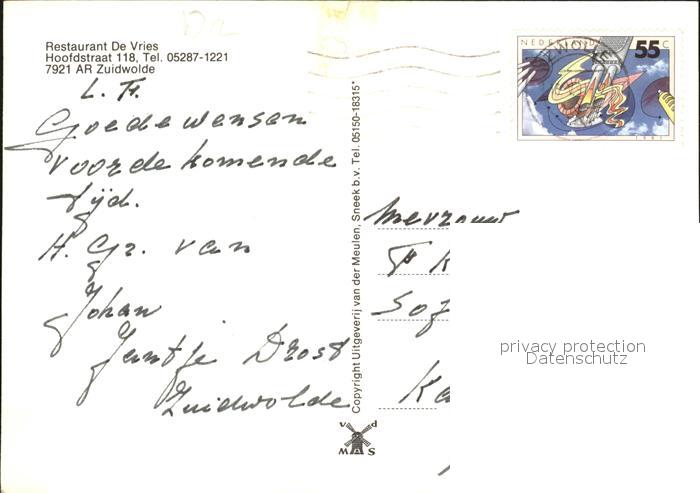 Restaurant De Vries
Hoofdstraat 118, Tel. 05287-1221
7921 AR Zuidwolde
L. F.
Goede wensen
voor de komende
tijd.
H. Gr. van
Johan
Jantje Drost
Zuidwolde
Copyright Uitgeverij van der Meulen, Sneek b.v. Tel. 05150-18315*
v d
M A S
NEDERLAND
55 c
ZWOLLE
Mevrouw
F K
Sof
Ka
privacy protection
Datenschutz